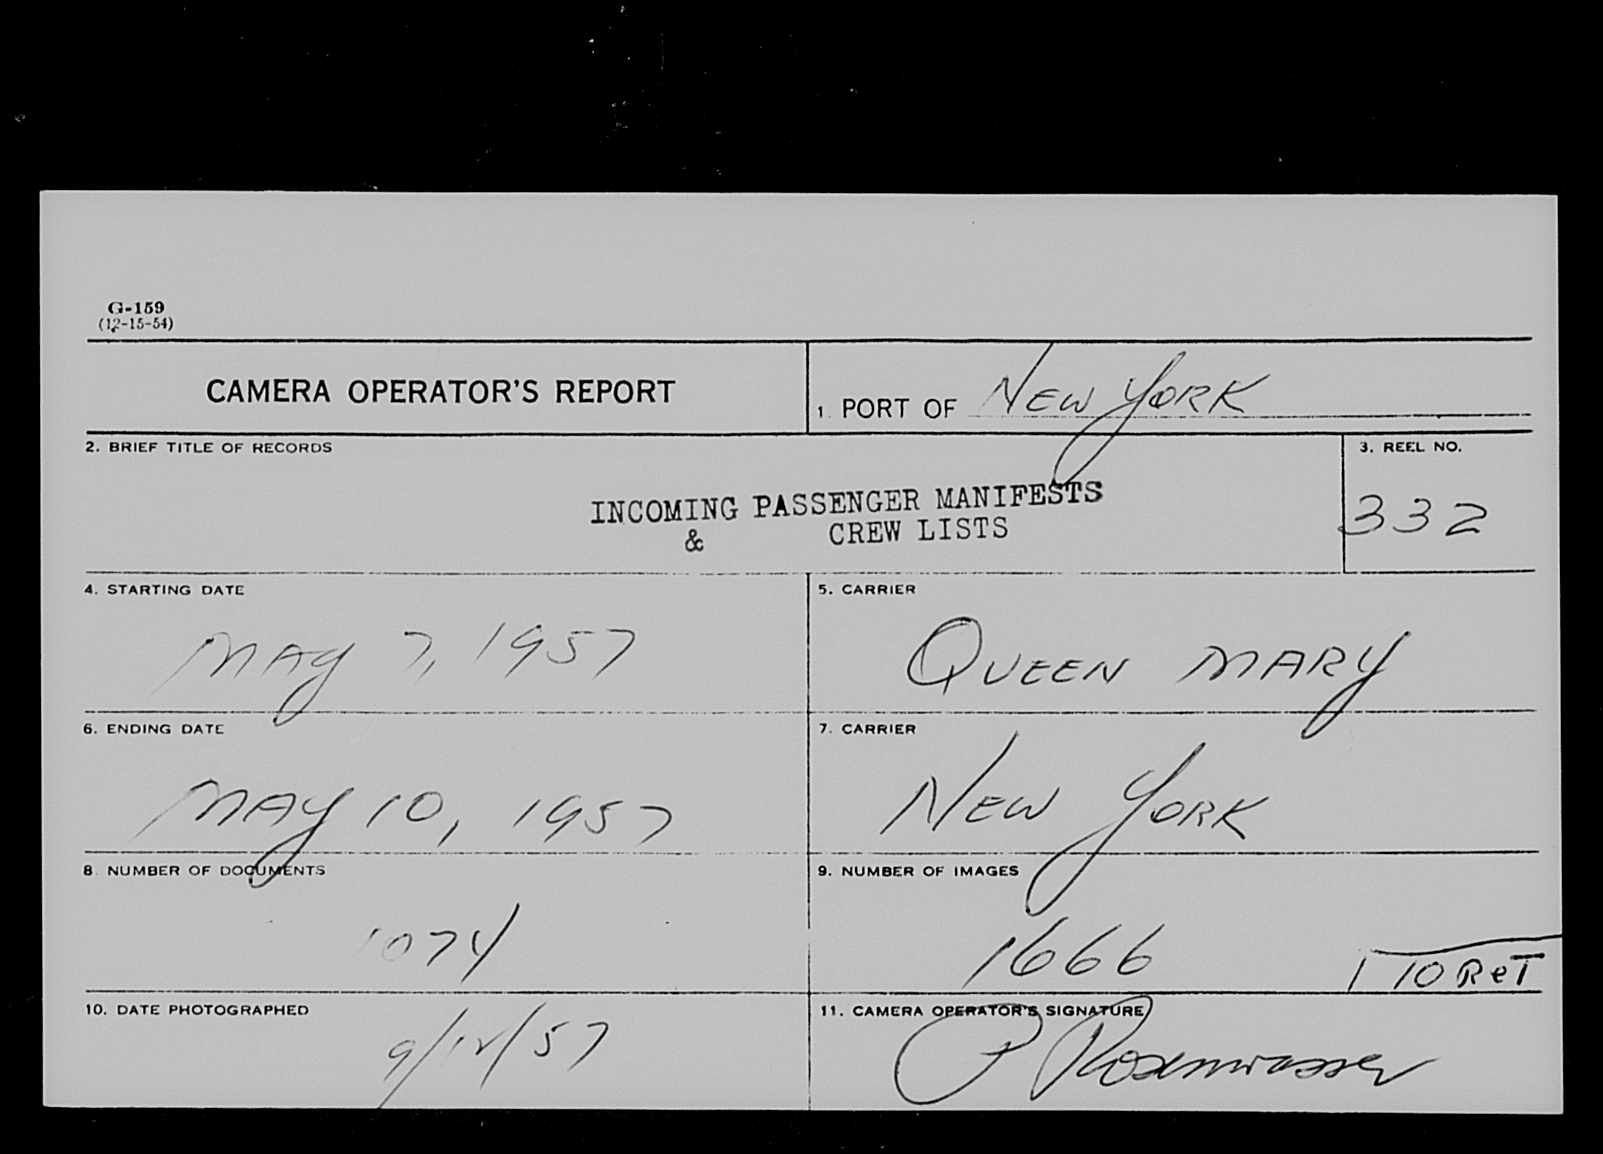 G-159
(12-15-54)
CAMERA OPERATOR'S REPORT
1. PORT OF NEW YORK
2. BRIEF TITLE OF RECORDS
INCOMING PASSENGER MANIFESTS
& CREW LISTS
3. REEL NO.
332
4. STARTING DATE
MAY 7, 1957
5. CARRIER
QUEEN MARY
6. ENDING DATE
MAY 10, 1957
7. CARRIER
NEW YORK
8. NUMBER OF DOCUMENTS
1074
9. NUMBER OF IMAGES
1666
10 ReT
10. DATE PHOTOGRAPHED
9/12/57
11. CAMERA OPERATOR'S SIGNATURE
P Rosenwasser